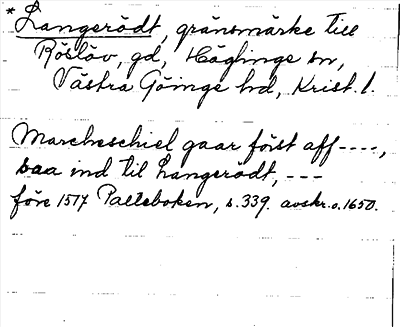 * Langerödt, gränsmärke till
Röslöv, gd, Häglinge sn,
Västra Göinge hd, Krist. l.
Marcheschiel gaar först aff ----,
saa ind til Langerödt, ---
före 1517 Palteboken, s. 339. avskr. o. 1650.